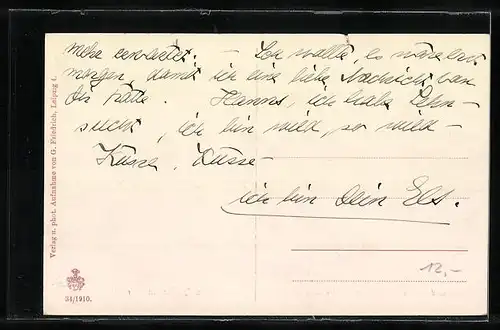 mehr erwartet. — Ich wollte, es wäre erst
morgen, damit ich eine liebe Nachricht von
Dir hätte. Hanns, ich habe Sehn-
sucht, ich bin wild, so wild —
Küsse, Küsse —
ich bin Dein Els.
12,-
Verlag u. phot. Aufnahme von G. Friedrich, Leipzig 4.
34/1910.